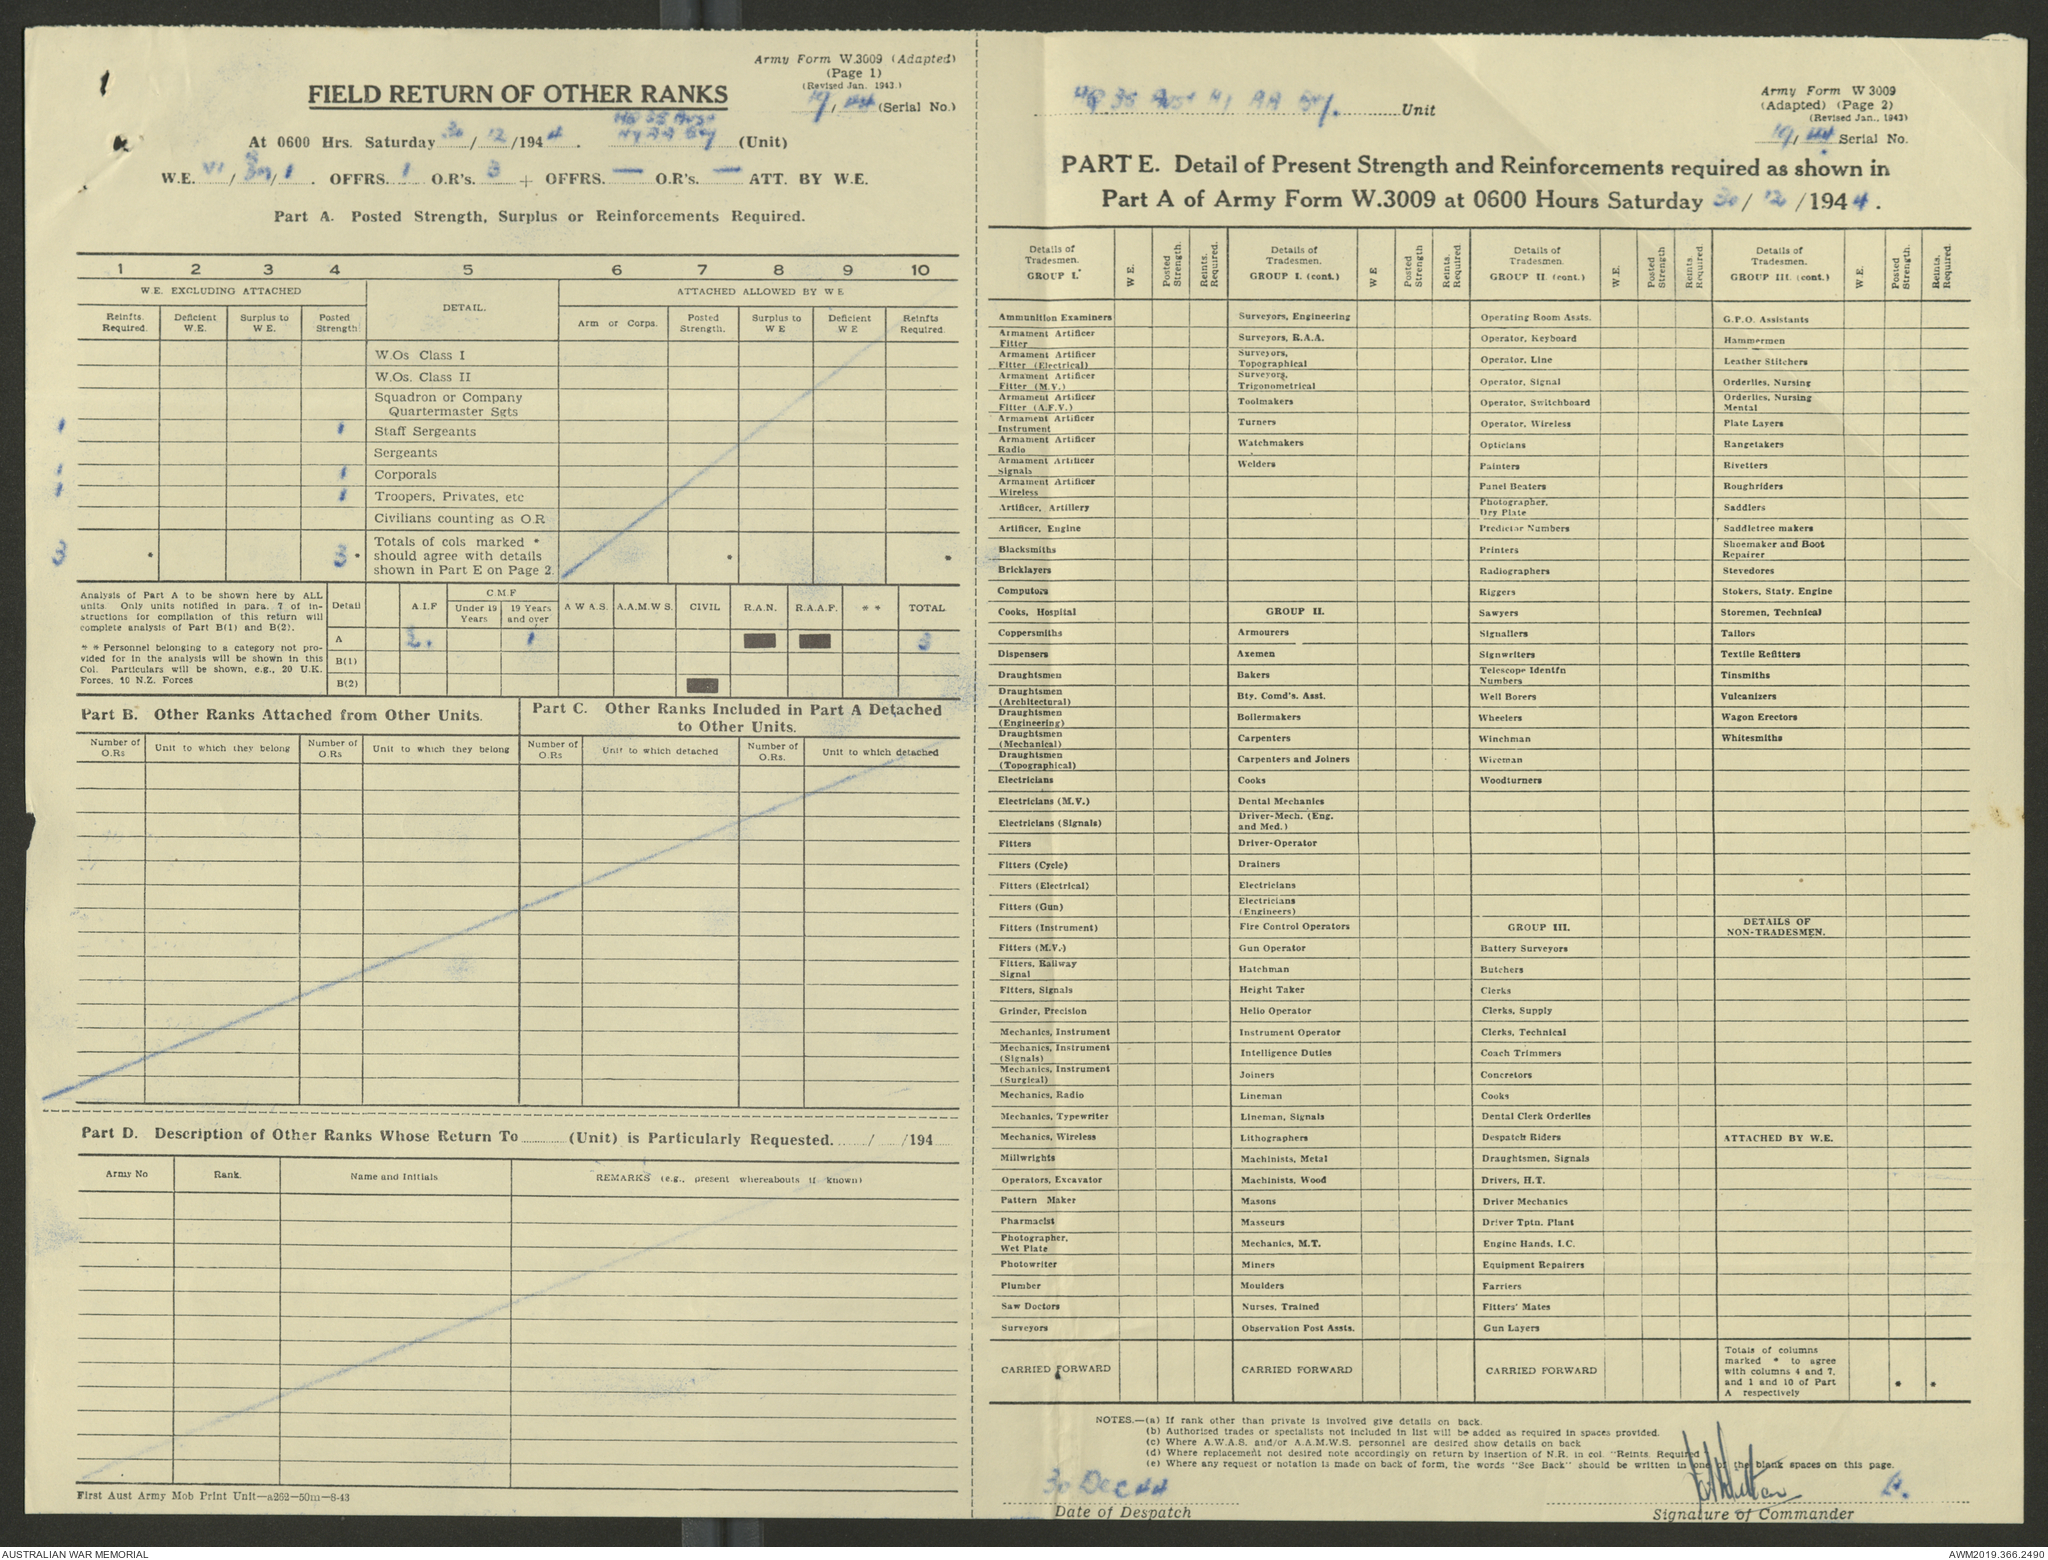 1
Army Form W.3009 (Adapted)
(Page 1)
(Revised Jan. 1943.)
FIELD RETURN OF OTHER RANKS
19/44 (Serial No.)
HQ 35 Aust
At 0600 Hrs. Saturday 30/12/1944. Hy AA Bty (Unit)
W.E. VI/ /1. OFFRS. 1 O.R's. 3 + OFFRS. — O.R's. — ATT. BY W.E.
Part A. Posted Strength, Surplus or Reinforcements Required.
1 2 3 4 5 6 7 8 9 10
W.E. EXCLUDING ATTACHED DETAIL. ATTACHED ALLOWED BY W E
Reinfts. Required. Deficient W.E. Surplus to W E. Posted Strength Arm or Corps. Posted Strength. Surplus to W E Deficient W E Reinfts Required.
W.Os Class I
W.Os. Class II
Squadron or Company
Quartermaster Sgts
1 1 Staff Sergeants
Sergeants
1 1 Corporals
1 1 Troopers, Privates, etc
Civilians counting as O.R
Totals of cols marked *
3 * 3 * should agree with details * *
shown in Part E on Page 2.
Analysis of Part A to be shown here by ALL
units. Only units notified in para. 7 of in-
structions for compilation of this return will
complete analysis of Part B(1) and B(2).
* * Personnel belonging to a category not pro-
vided for in the analysis will be shown in this
Col. Particulars will be shown, e.g., 20 U.K.
Forces, 10 N.Z. Forces
Detail A.I.F C M.F Under 19 Years 19 Years and over A W A S. A.A.M.W S. CIVIL R.A.N. R.A.A.F. * * TOTAL
A 2. 1 3
B(1)
B(2)
Part B. Other Ranks Attached from Other Units.
Part C. Other Ranks Included in Part A Detached
to Other Units.
Number of O.Rs Unit to which they belong Number of O.Rs Unit to which they belong Number of O.Rs Unit to which detached Number of O.Rs. Unit to which detached
Part D. Description of Other Ranks Whose Return To ......... (Unit) is Particularly Requested. ...../...../194.....
Army No Rank. Name and Initials REMARKS (e.g., present whereabouts if known)
First Aust Army Mob Print Unit—a262—50m—8-43
HQ 35 Aust Hy AA Bty. Unit
Army Form W 3009
(Adapted) (Page 2)
(Revised Jan., 1943)
19/44 Serial No.
PART E. Detail of Present Strength and Reinforcements required as shown in
Part A of Army Form W.3009 at 0600 Hours Saturday 30/12/1944.
Details of Tradesmen. GROUP I. W E. Posted Strength. Reints. Required.
Ammunition Examiners
Armament Artificer Fitter
Armament Artificer Fitter (Electrical)
Armament Artificer Fitter (M.V.)
Armament Artificer Fitter (A.F.V.)
Armament Artificer Instrument
Armament Artificer Radio
Armament Artificer Signals
Armament Artificer Wireless
Artificer, Artillery
Artificer, Engine
Blacksmiths
Bricklayers
Computors
Cooks, Hospital
Coppersmiths
Dispensers
Draughtsmen
Draughtsmen (Architectural)
Draughtsmen (Engineering)
Draughtsmen (Mechanical)
Draughtsmen (Topographical)
Electricians
Electricians (M.V.)
Electricians (Signals)
Fitters
Fitters (Cycle)
Fitters (Electrical)
Fitters (Gun)
Fitters (Instrument)
Fitters (M.V.)
Fitters, Railway Signal
Fitters, Signals
Grinder, Precision
Mechanics, Instrument
Mechanics, Instrument (Signals)
Mechanics, Instrument (Surgical)
Mechanics, Radio
Mechanics, Typewriter
Mechanics, Wireless
Millwrights
Operators, Excavator
Pattern Maker
Pharmacist
Photographer, Wet Plate
Photowriter
Plumber
Saw Doctors
Surveyors
CARRIED FORWARD
Details of Tradesmen. GROUP I. (cont.) W E Posted Strength Reints. Required
Surveyors, Engineering
Surveyors, R.A.A.
Surveyors, Topographical
Surveyors, Trigonometrical
Toolmakers
Turners
Watchmakers
Welders
GROUP II.
Armourers
Axemen
Bakers
Bty. Comd's. Asst.
Boilermakers
Carpenters
Carpenters and Joiners
Cooks
Dental Mechanics
Driver-Mech. (Eng. and Med.)
Driver-Operator
Drainers
Electricians
Electricians (Engineers)
Fire Control Operators
Gun Operator
Hatchman
Height Taker
Helio Operator
Instrument Operator
Intelligence Duties
Joiners
Lineman
Lineman, Signals
Lithographers
Machinists, Metal
Machinists, Wood
Masons
Masseurs
Mechanics, M.T.
Miners
Moulders
Nurses, Trained
Observation Post Assts.
CARRIED FORWARD
Details of Tradesmen. GROUP II. (cont.) W.E. Posted Strength Reints. Required
Operating Room Assts.
Operator, Keyboard
Operator, Line
Operator, Signal
Operator, Switchboard
Operator, Wireless
Opticians
Painters
Panel Beaters
Photographer, Dry Plate
Predictor Numbers
Printers
Radiographers
Riggers
Sawyers
Signallers
Signwriters
Telescope Identfn Numbers
Well Borers
Wheelers
Winchman
Wireman
Woodturners
GROUP III.
Battery Surveyors
Butchers
Clerks
Clerks, Supply
Clerks, Technical
Coach Trimmers
Concretors
Cooks
Dental Clerk Orderlies
Despatch Riders
Draughtsmen, Signals
Drivers, H.T.
Driver Mechanics
Driver Tptn. Plant
Engine Hands, I.C.
Equipment Repairers
Farriers
Fitters' Mates
Gun Layers
CARRIED FORWARD
Details of Tradesmen. GROUP III. (cont.) W.E. Posted Strength. Reints. Required.
G.P.O. Assistants
Hammermen
Leather Stitchers
Orderlies, Nursing
Orderlies, Nursing Mental
Plate Layers
Rangetakers
Rivetters
Roughriders
Saddlers
Saddletree makers
Shoemaker and Boot Repairer
Stevedores
Stokers, Staty. Engine
Storemen, Technical
Tailors
Textile Refitters
Tinsmiths
Vulcanizers
Wagon Erectors
Whitesmiths
DETAILS OF NON-TRADESMEN.
ATTACHED BY W.E.
Totals of columns
marked * to agree
with columns 4 and 7,
and 1 and 10 of Part * *
A respectively
NOTES.—(a) If rank other than private is involved give details on back.
(b) Authorised trades or specialists not included in list will be added as required in spaces provided.
(c) Where A.W.A.S. and/or A.A.M.W.S. personnel are desired show details on back
(d) Where replacement not desired note accordingly on return by insertion of N.R. in col. "Reints. Required"
(e) Where any request or notation is made on back of form, the words "See Back" should be written in one of the blank spaces on this page.
30 Dec 44
Date of Despatch
Signature of Commander
AUSTRALIAN WAR MEMORIAL
AWM2019.366.2490